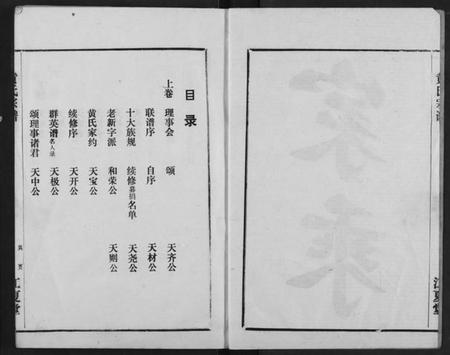 目录
上卷 理事会 颂 天齐公
联谱序 自序 天材公
十大族规 续修募捐名单 天尧公
老新字派 和荣公 天则公
黄氏家约 天宝公
续修序 天开公
群英谱名人录 天极公
颂理事诸君 天中公
黄氏宗谱
江夏堂
家乘
黄氏宗谱
江夏堂